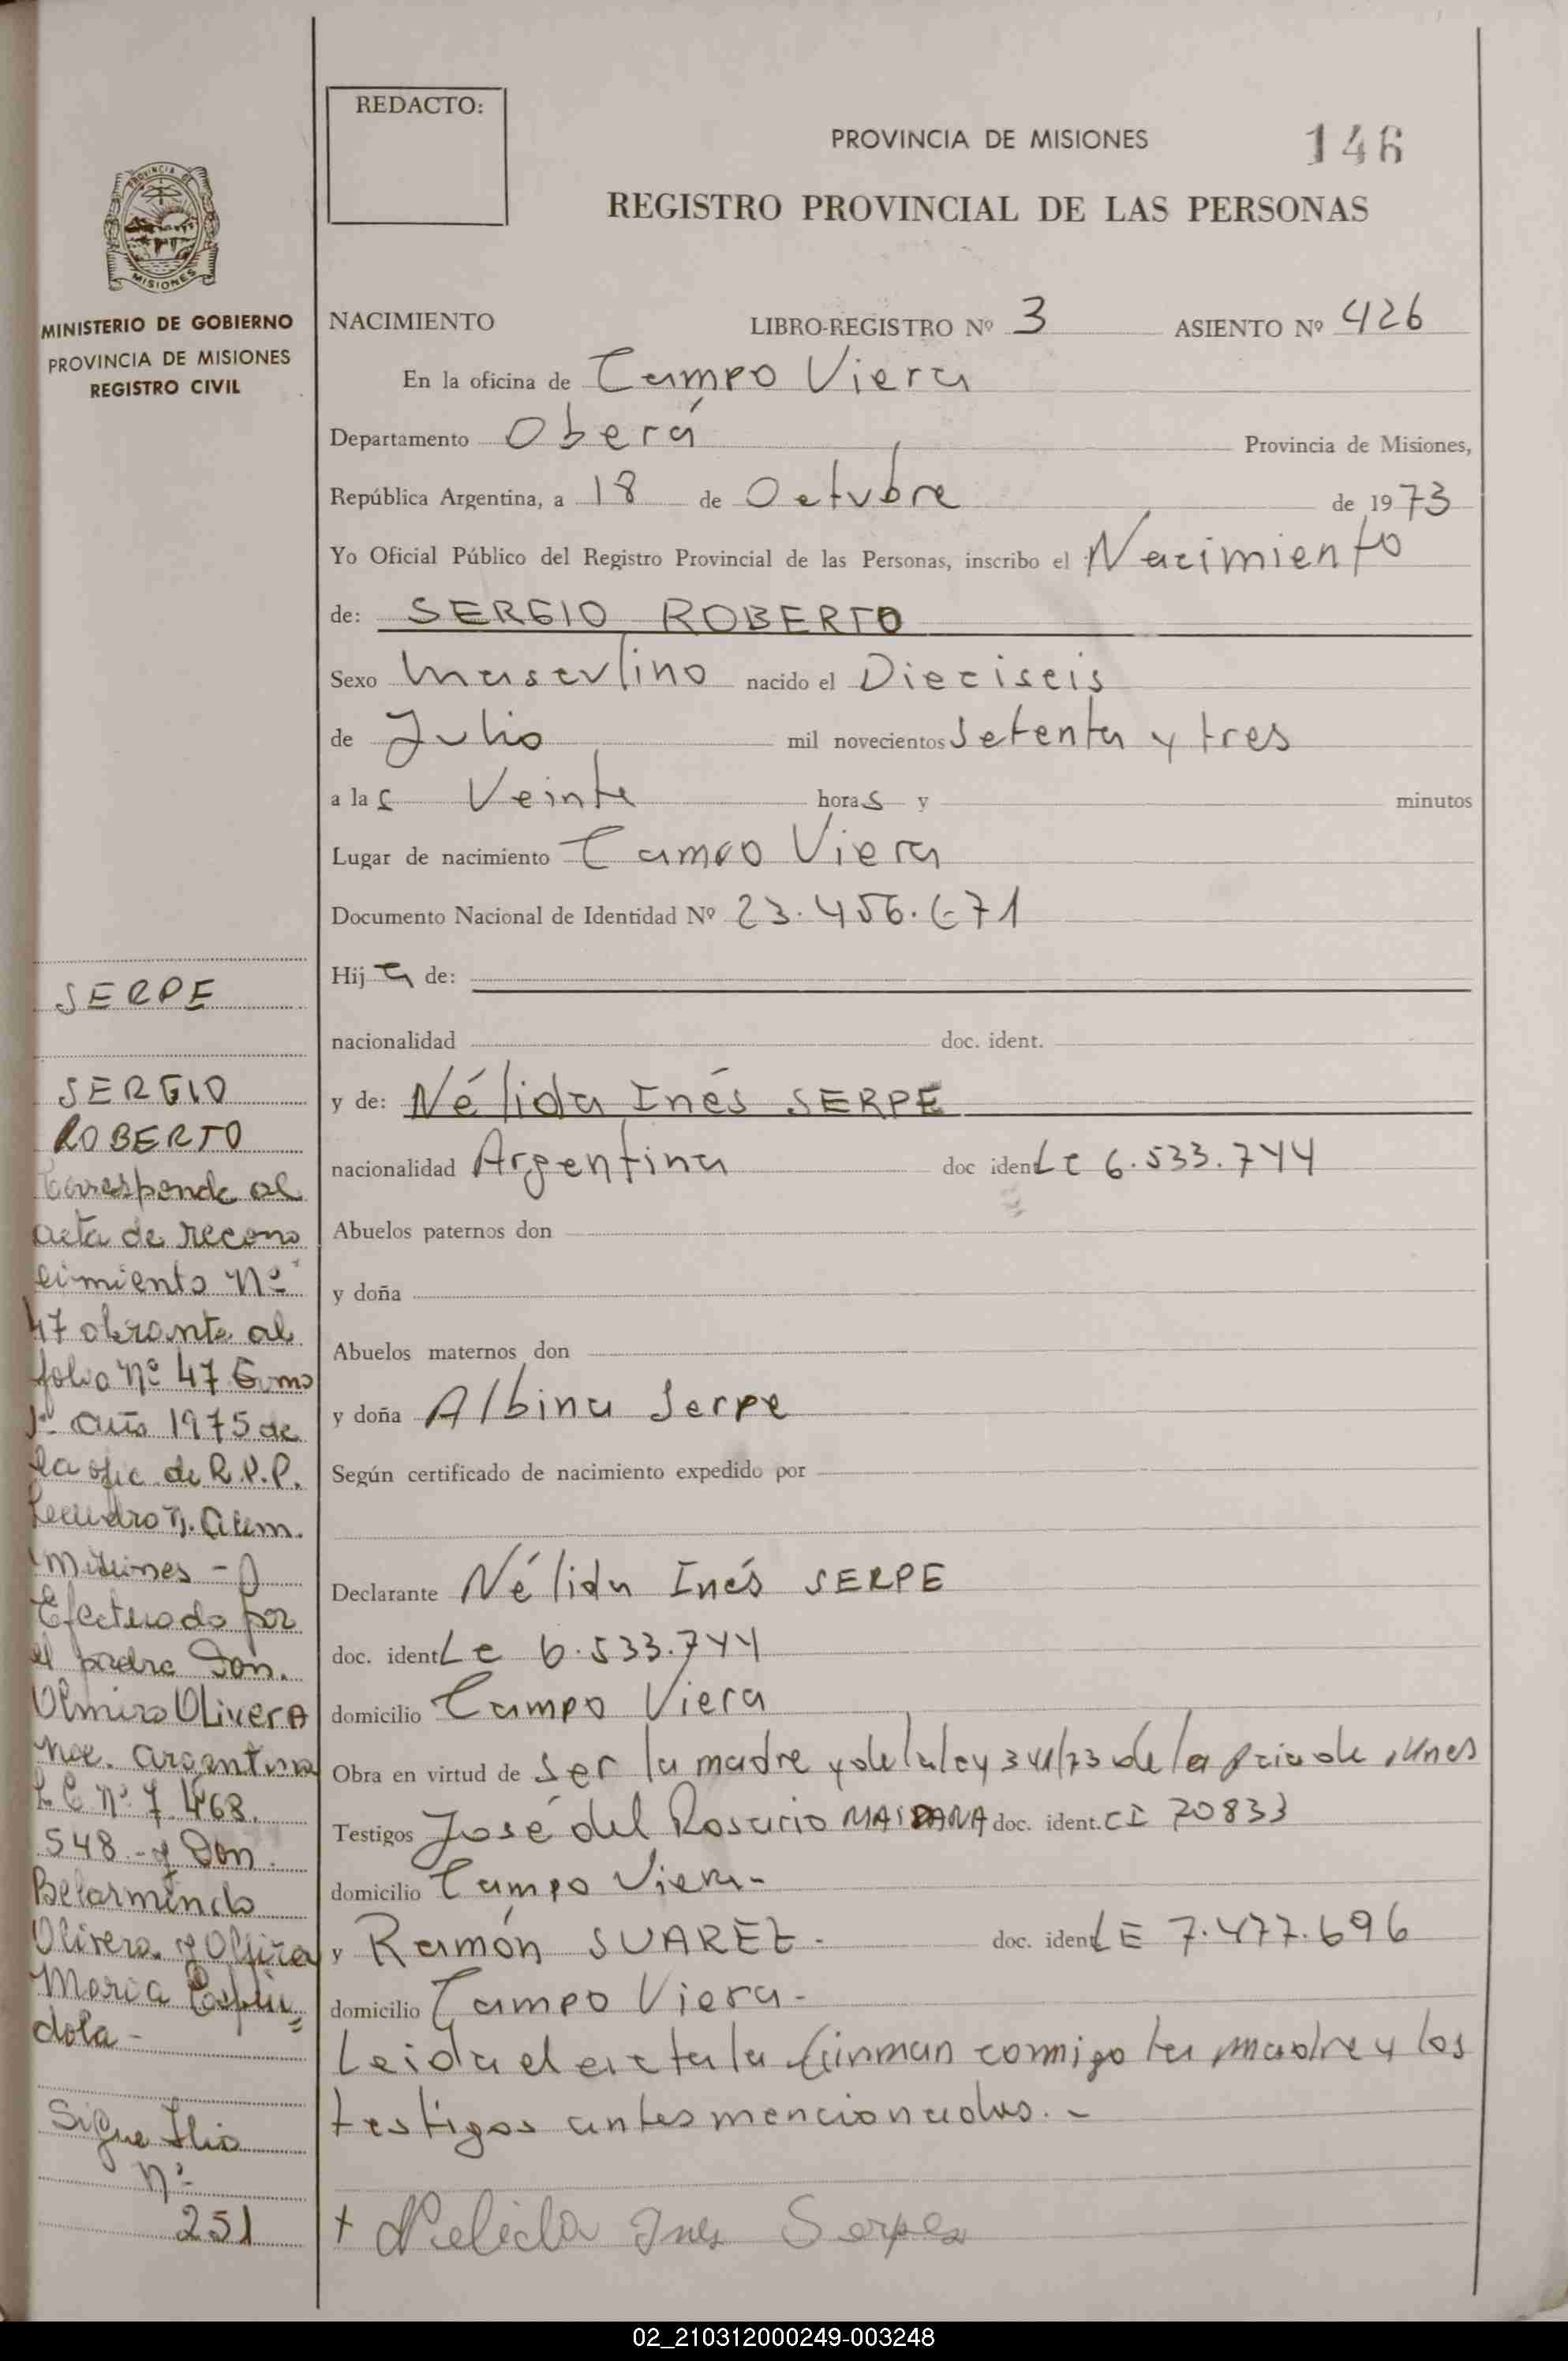 REDACTO:
PROVINCIA DE MISIONES
146
REGISTRO PROVINCIAL DE LAS PERSONAS
PROVINCIA DE
MISIONES
MINISTERIO DE GOBIERNO
PROVINCIA DE MISIONES
REGISTRO CIVIL
NACIMIENTO LIBRO-REGISTRO Nº 3 ASIENTO Nº 426
En la oficina de Campo Viera
Departamento Oberá Provincia de Misiones,
República Argentina, a 18 de Octubre de 1973
Yo Oficial Público del Registro Provincial de las Personas, inscribo el Nacimiento
de: SERGIO ROBERTO
Sexo masculino nacido el Dieciseis
de Julio mil novecientos setenta y tres
a las Veinte horas y minutos
Lugar de nacimiento Campo Viera
Documento Nacional de Identidad Nº 23.456.671
Hij de:
nacionalidad doc. ident.
y de: Nélida Inés SERPE
nacionalidad Argentina doc ident LC 6.533.744
Abuelos paternos don
y doña
Abuelos maternos don
y doña Albina Serpe
Según certificado de nacimiento expedido por
Declarante Nélida Inés SERPE
doc. ident LC 6.533.744
domicilio Campo Viera
Obra en virtud de ser la madre y de la ley 341/73 de la Pcia de
Testigos José del Rosario MAIDANA doc. ident. CI 70833
domicilio Campo Viera-
y Ramón SUAREZ- doc. ident LE 7.477.696
domicilio Campo Viera-
Leida el acta la firman conmigo la madre y los
testigos antes mencionados.-
+ Nelida Ines Serpe
SERPE
SERGIO
ROBERTO
Corresponde al
acta de recono
cimiento Nº
47 obrante al
folio Nº 47 Tomo
1º año 1975 de
la ofic de R.P.P.
Leandro N. Alem.
Misiones -
Efectuado por
el padre Don.
Olmiro OLiverA
nac. argentina
Nº 7.468.
548.- y Don.
Belarmindo
Olivera y
Maria Espin=
dola-
Sigue flio
Nº
251
02_210312000249-003248